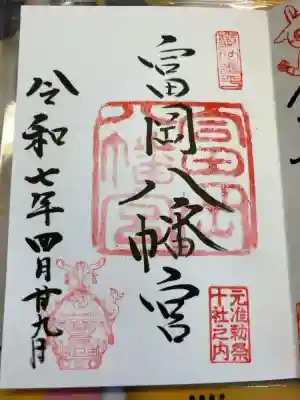 富岡八幡宮
令和七年四月廿九日
富岡
八幡宮
元准勅祭
十社之内